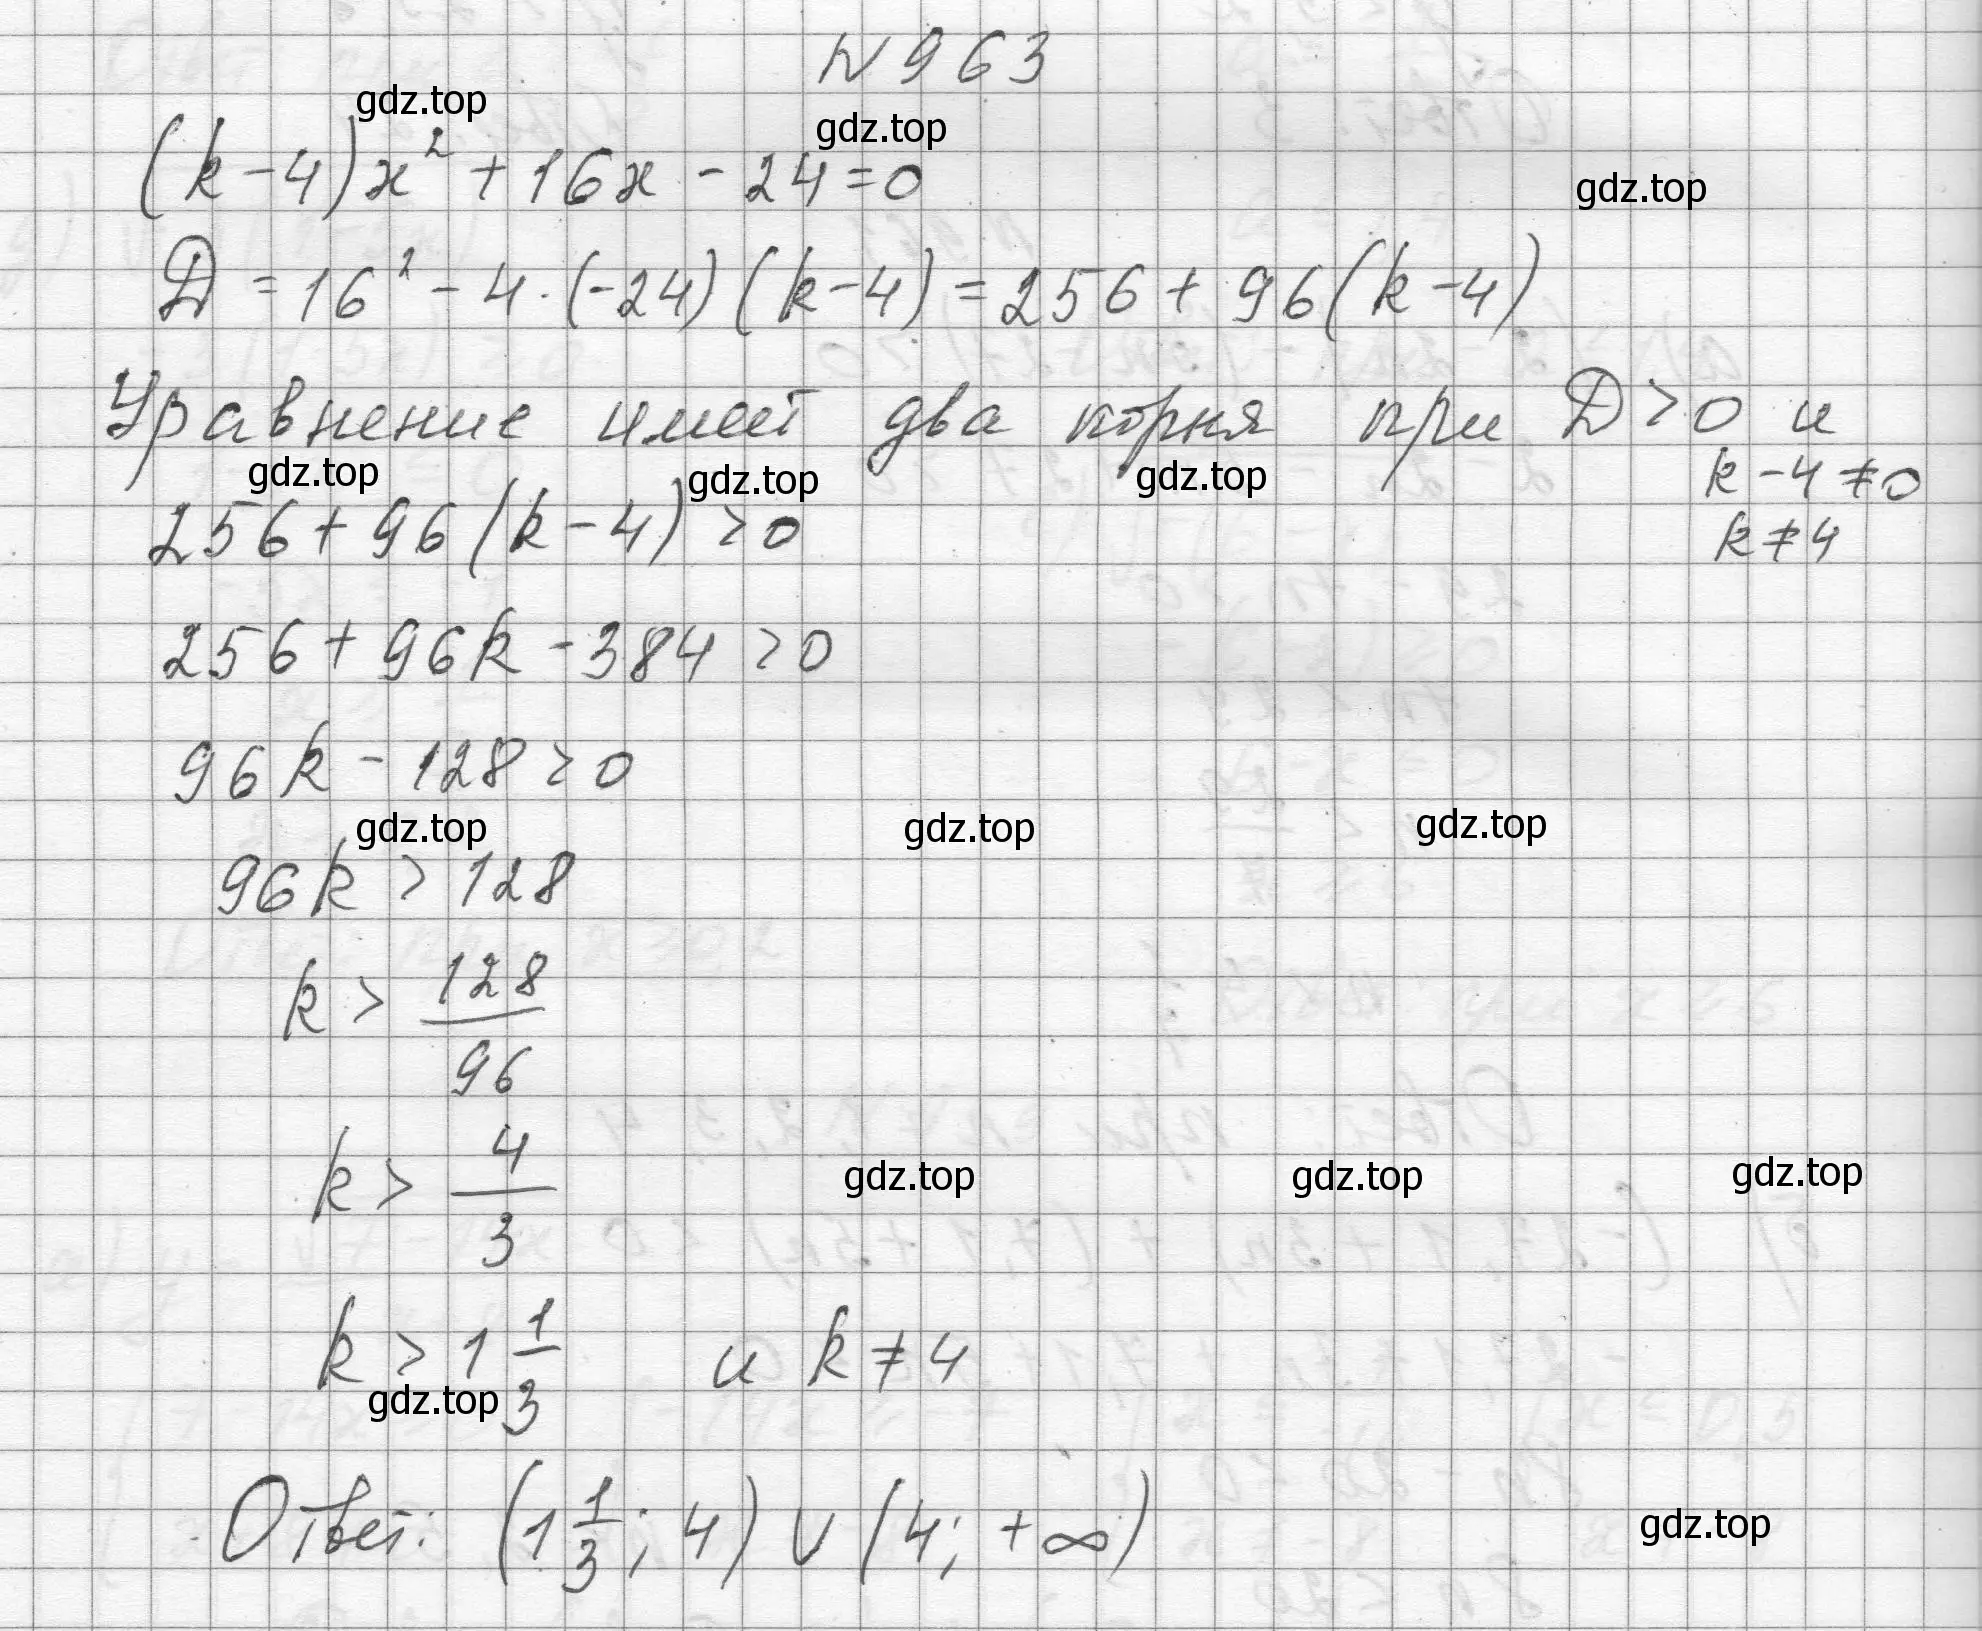 N 963
gdz.top
gdz.top
(k-4)x² + 16x - 24 = 0
gdz.top
D = 16² - 4·(-24)(k-4) = 256 + 96(k-4)
Уравнение имеет два корня при D > 0 и
k - 4 ≠ 0
k ≠ 4
gdz.top gdz.top gdz.top
256 + 96(k-4) > 0
256 + 96k - 384 > 0
96k - 128 > 0
gdz.top gdz.top gdz.top
96k > 128
k > 128/96
k > 4/3
gdz.top gdz.top gdz.top
k > 1 1/3 и k ≠ 4
gdz.top
Ответ: (1 1/3; 4) ∪ (4; +∞)
gdz.top